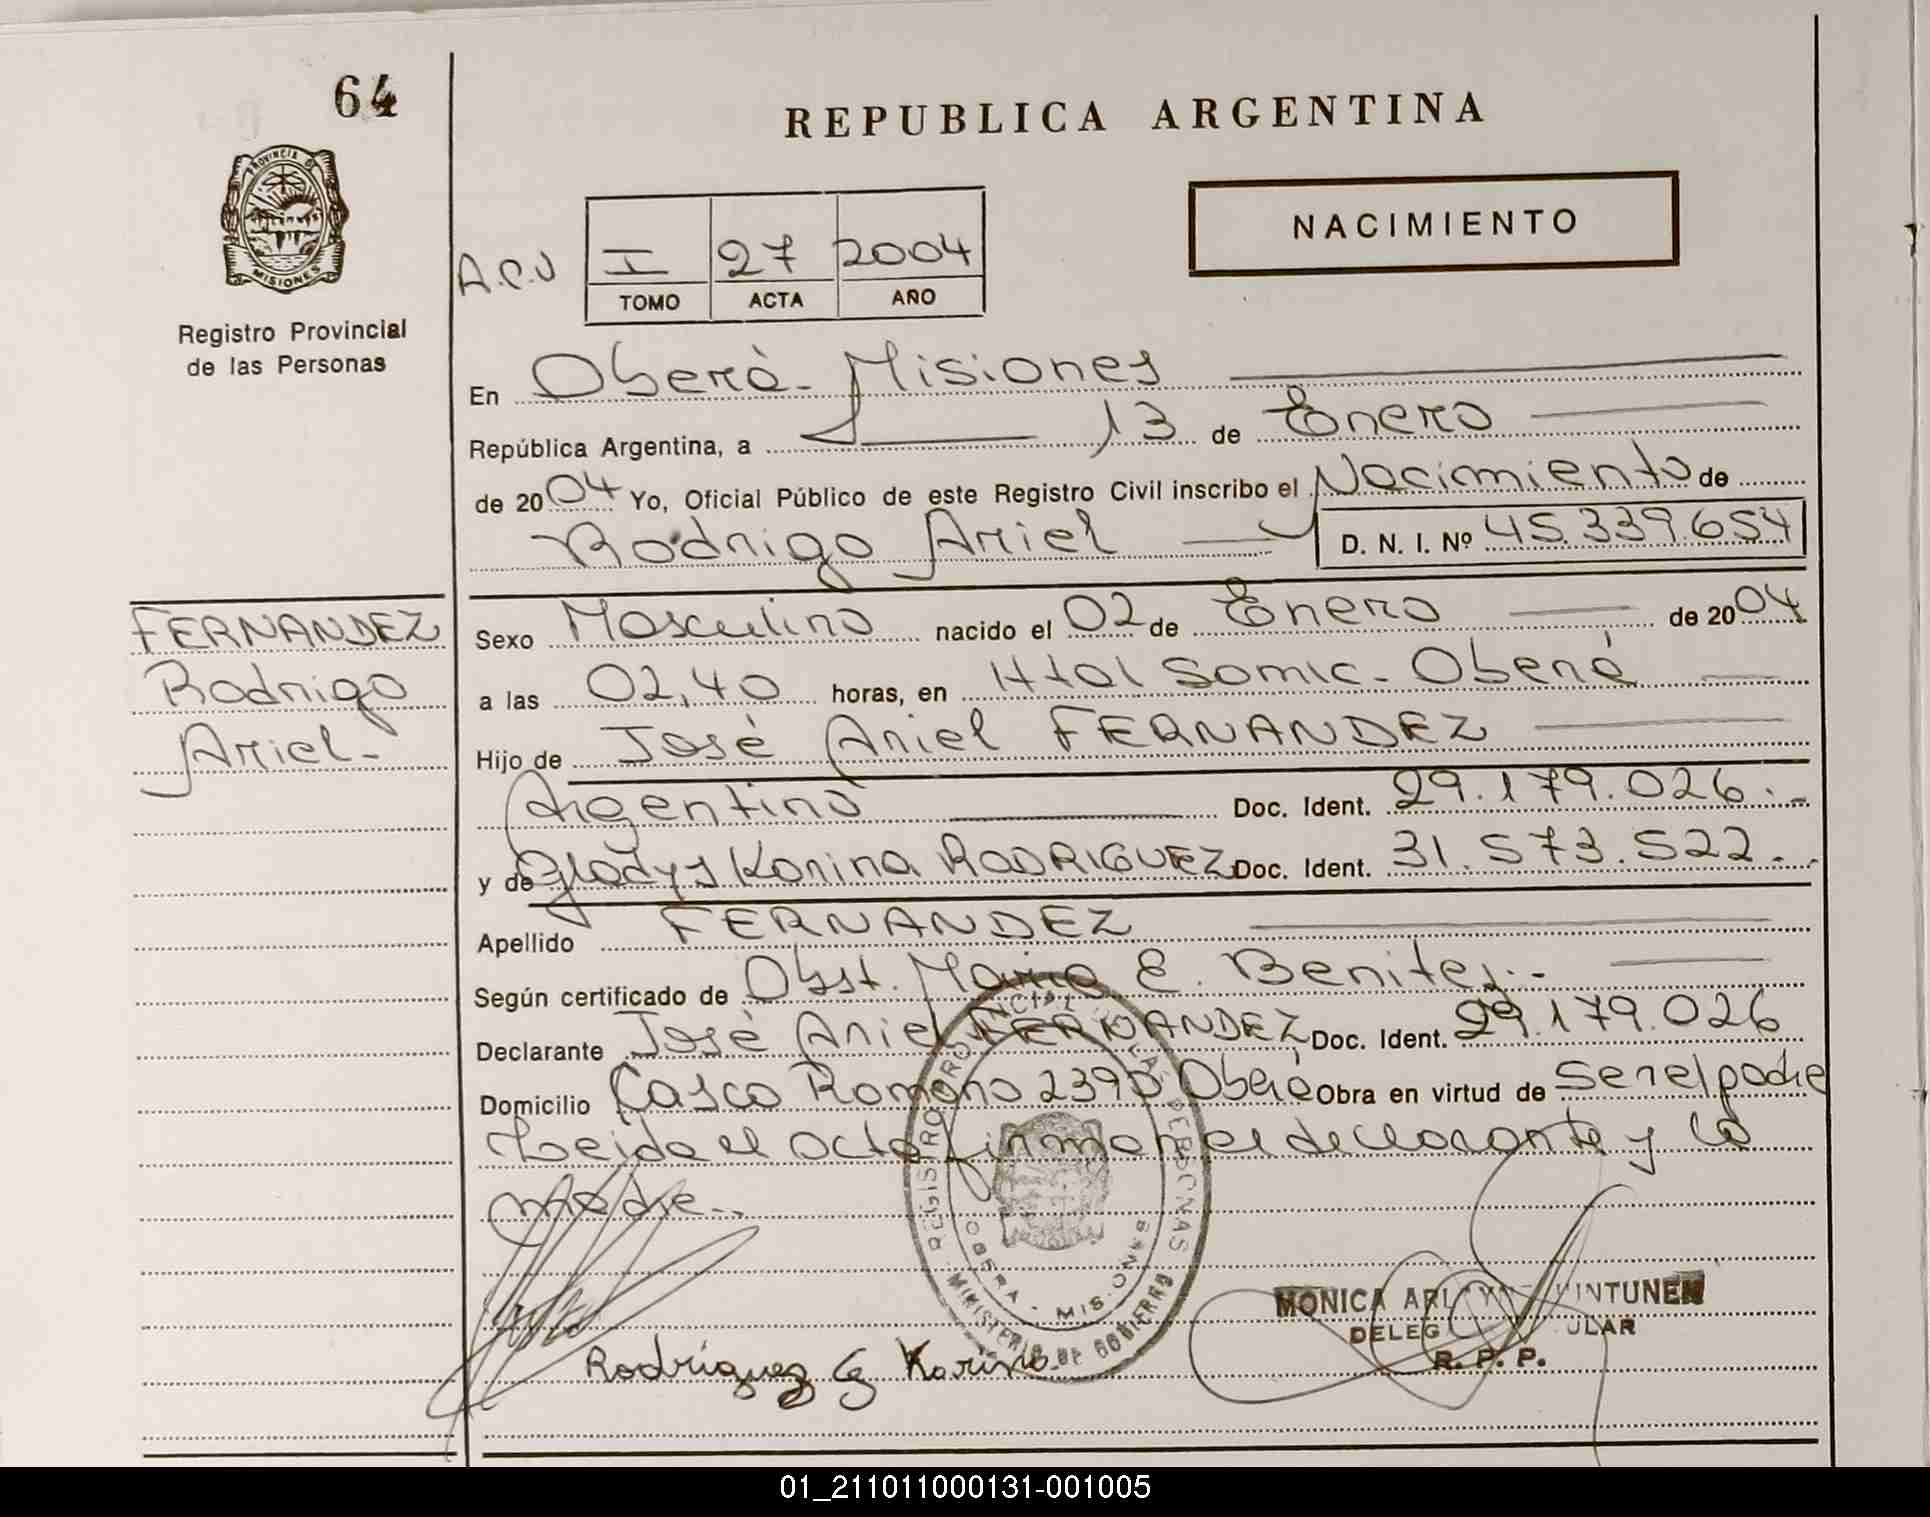 64
REPUBLICA ARGENTINA
PROVINCIA DE
MISIONES
Registro Provincial
de las Personas
NACIMIENTO
A.C.U
I 27 2004
TOMO ACTA AÑO
En Oberá - Misiones
República Argentina, a 13 de Enero
de 2004 Yo, Oficial Público de este Registro Civil inscribo el Nacimiento de
Rodrigo Ariel D. N. I. Nº 45.339.654
FERNANDEZ
Rodrigo
Ariel-
Sexo Masculino nacido el 02 de Enero de 2004
a las 02,40 horas, en Htal Samic - Oberá
Hijo de José Ariel FERNANDEZ
Argentino Doc. Ident. 29.179.026.-
y de Gladys Karina RODRIGUEZ Doc. Ident. 31.573.522.
Apellido FERNANDEZ
Según certificado de Obst. Maria E. Benitez.-
Declarante José Ariel FERNANDEZ Doc. Ident. 29.179.026
Domicilio Casco Romano 2390 Oberá Obra en virtud de Ser el padre
Leida el acta firman el declarante y la
madre.-
REGISTRO PROVINCIAL DE LAS PERSONAS
OBERA - MISIONES
MINISTERIO DE GOBIERNO
Rodríguez G Karina
MONICA
R. P. P.
01_211011000131-001005